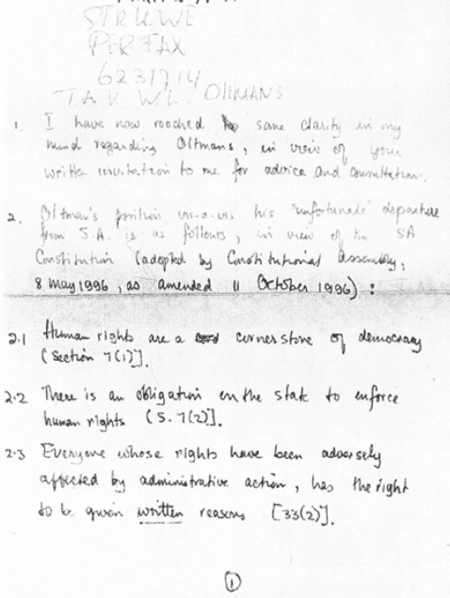 STRUWE
PER FAX
6231714
T.A.V. W.L. OLTMANS
1. I have now reached some clarity in my
mind regarding Oltmans, in view of your
written invitation to me for advice and consultation.
2. Oltman's position vis-a-vis his "unfortunate" departure
from S.A. is as follows, in view of the SA
Constitution (adopted by Constitutional Assembly,
8 May 1996, as amended 11 October 1996):
2.1 Human rights are a corner stone of democracy
(Section 7(1)].
2.2 There is an obligation on the state to enforce
human rights (S. 7(2)].
2.3 Everyone whose rights have been adversely
affected by administrative action, has the right
to be given written reasons [33(2)].
1